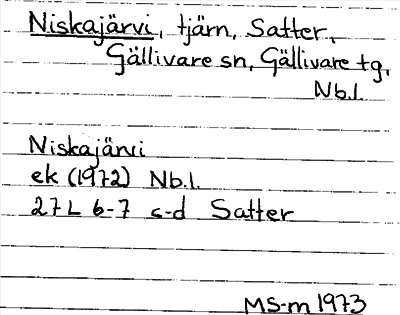 Niskajärvi, tjärn, Satter,
Gällivare sn, Gällivare tg,
Nb.l.
Niskajärvi
ek (1972) Nb.l.
27L 6-7 c-d Satter
MS-m 1973